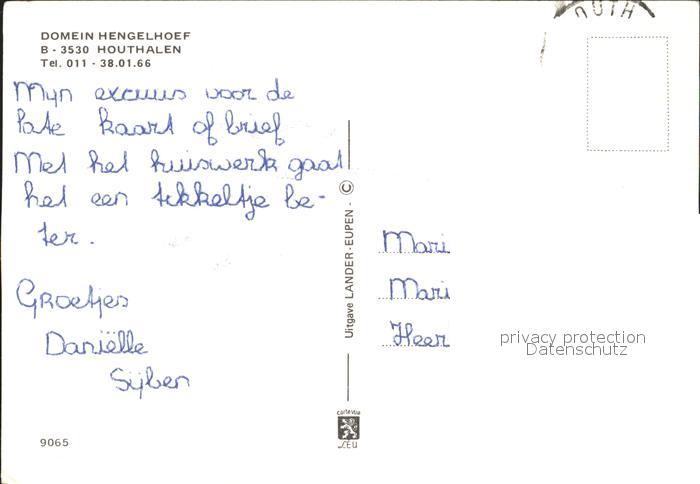 DOMEIN HENGELHOEF
B - 3530 HOUTHALEN
Tel. 011 - 38.01.66
Mijn excuus voor de
late kaart of brief
Met het huiswerk gaat
het een tikkeltje be-
ter.
Groetjes
Daniëlle
Sijben
9065
Uitgave LANDER - EUPEN - ©
cartevue
LEU
OUTH
Mari
Mari
Heer
privacy protection
Datenschutz